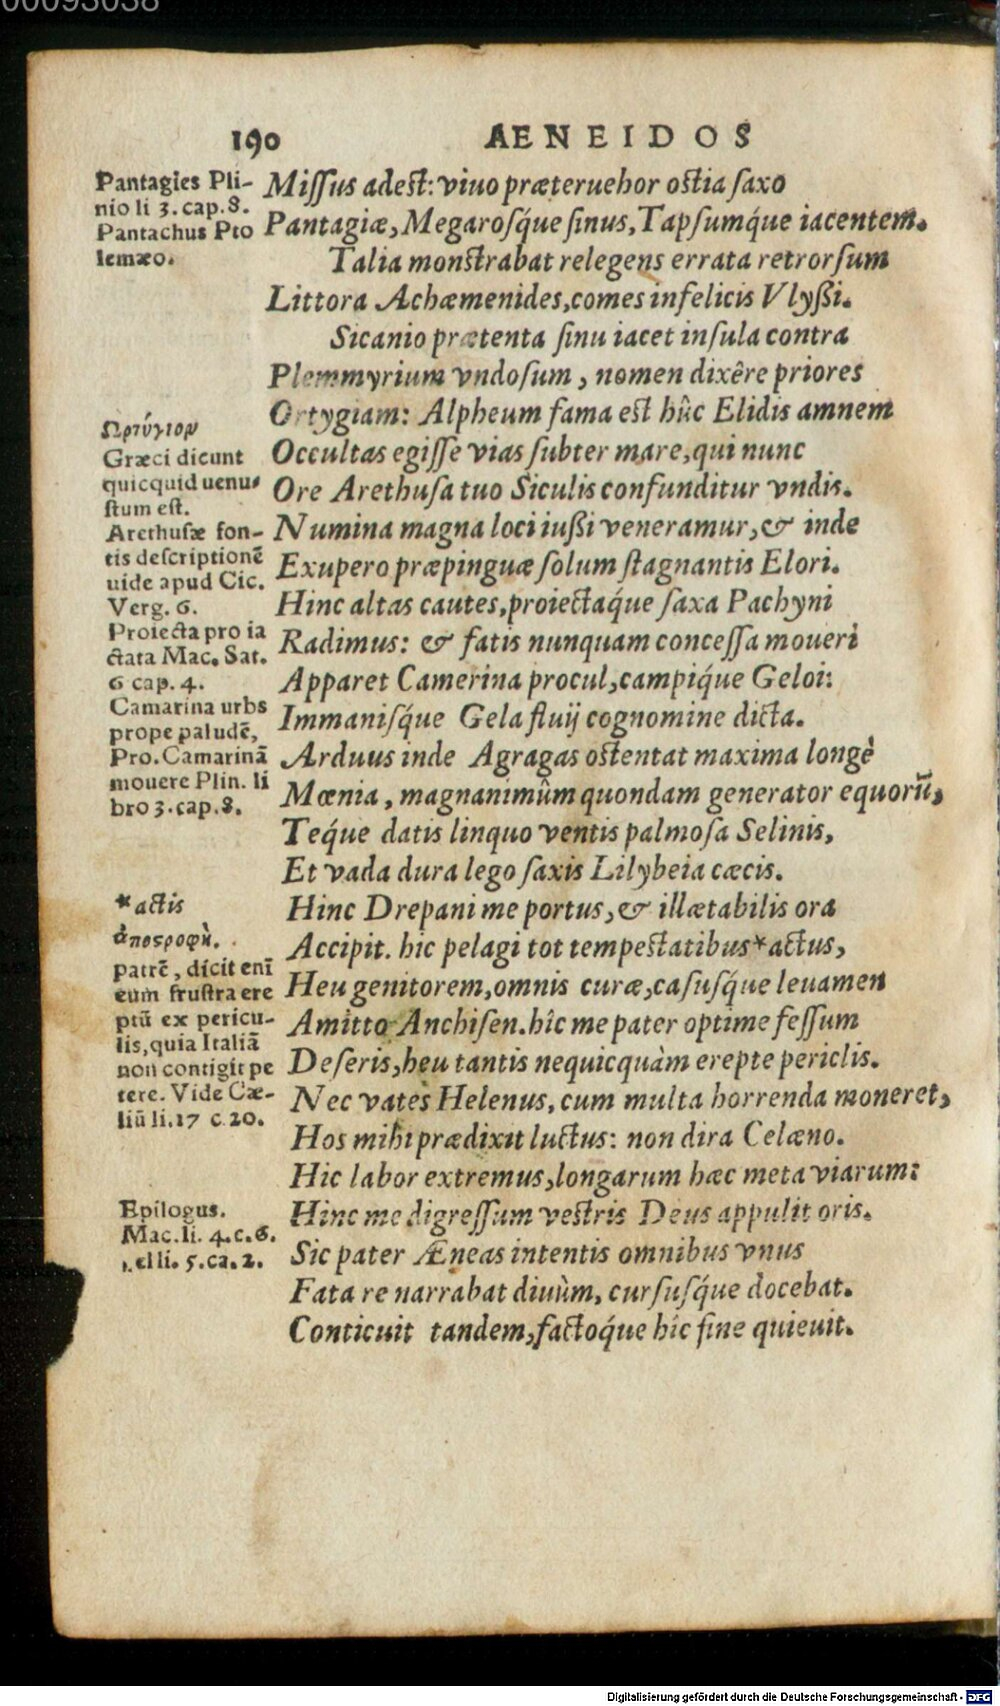 00093038
190 AENEIDOS
Pantagies Pli-
nio li 3. cap. 8.
Pantachus Pto
lemæo.
Miſſus adest: viuo præteruehor ostia ſaxo
Pantagiæ, Megaroſq́ue ſinus, Tapſumq́ue iacentem.
Talia monstrabat relegens errata retrorſum
Littora Achæmenides, comes infelicis Vlyßi.
Sicanio prætenta ſinu iacet inſula contra
Plemmyrium vndoſum, nomen dixêre priores
Ortygiam: Alpheum fama est hûc Elidis amnem
Occultas egiſſe vias ſubter mare, qui nunc
Ore Arethuſa tuo Siculis confunditur vndis.
Numina magna loci iußi veneramur, & inde
Exupero præpinguæ ſolum ſtagnantis Elori.
Hinc altas cautes, proiectaq́ue ſaxa Pachyni
Radimus: & fatis nunquam conceſſa moueri
Apparet Camerina procul, campiq́ue Geloi:
Immaniſq́ue Gela fluij cognomine dicta.
Arduus inde Agragas ostentat maxima longè
Mœnia, magnanimûm quondam generator equorũ,
Teq́ue datis linquo ventis palmoſa Selinis,
Et vada dura lego ſaxis Lilybeia cæcis.
Hinc Drepani me portus, & illætabilis ora
Accipit. hic pelagi tot tempestatibus*actus,
Heu genitorem, omnis curæ, caſuſq́ue leuamen
Amitto Anchiſen. hîc me pater optime feſſum
Deſeris, heu tantis nequicquàm erepte periclis.
Nec vates Helenus, cum multa horrenda moneret,
Hos mihi prædixit luctus: non dira Celæno.
Hic labor extremus, longarum hæc meta viarum:
Hinc me digreſſum vestris Deus appulit oris.
Sic pater Æneas intentis omnibus vnus
Fata re narrabat diuûm, curſuſq́ue docebat.
Conticuit tandem, factoq́ue hîc fine quieuit.
Ωρτύγιον
Græci dicunt
quicquid uenu-
ſtum eſt.
Arethuſæ fon-
tis deſcriptionẽ
uide apud Cic.
Verg. 6.
Proiecta pro ia
ctata Mac. Sat.
6 cap. 4.
Camarina urbs
prope paludẽ,
Pro. Camarinã
mouere Plin. li
bro 3. cap. 8.
*actis
ἀποςροφὴ.
patrẽ, dicit enĩ
eum fruſtra ere
ptũ ex pericu-
lis, quia Italiã
non contigit pe
tere. Vide Cæ-
liũ li. 17 c. 20.
Epilogus.
Mac. li. 4. c. 6.
el li. 5. ca. 2.
Digitalisierung gefördert durch die Deutsche Forschungsgemeinschaft - DFG